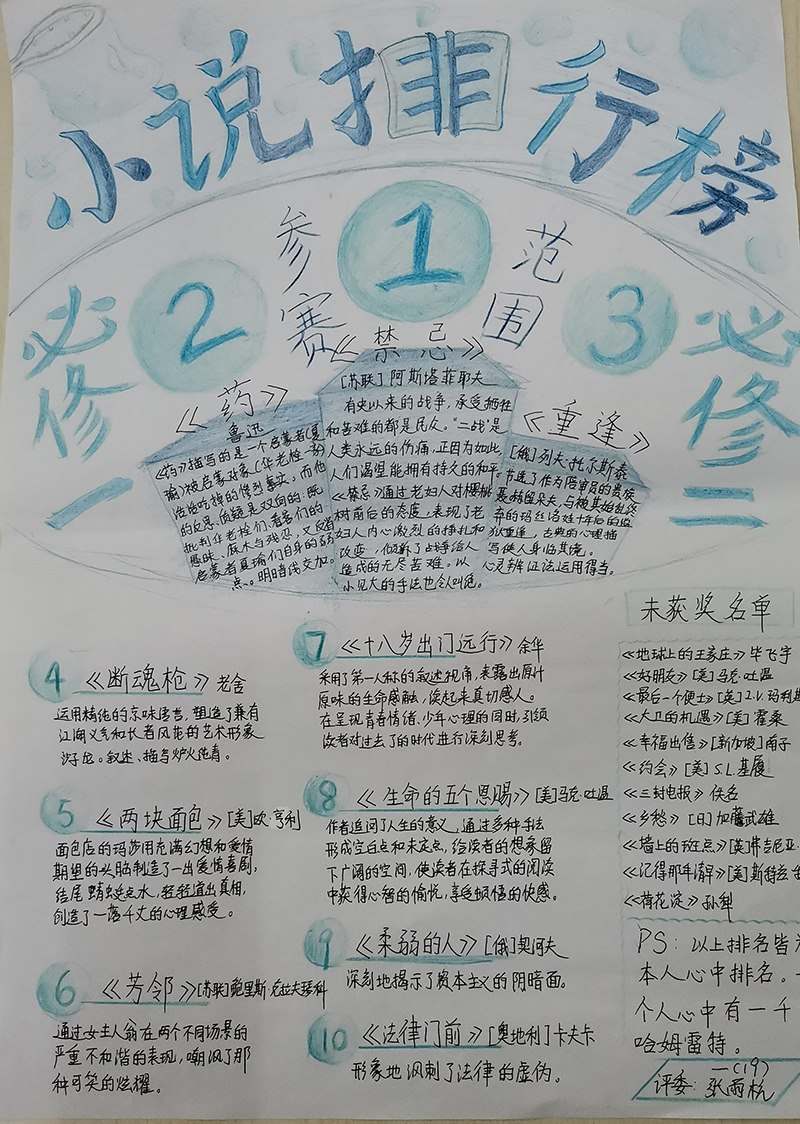 小说排行榜
参赛范围
必修一
必修二
1
《禁忌》
[苏联]阿斯塔菲耶夫
有史以来的战争，承受牺牲
和苦难的都是民众。“二战”是
人类永远的伤痛，正因为如此，
人们渴望能拥有持久的和平。
《禁忌》通过老妇人对樱桃
树前后的态度，表现了老
妇人内心激烈的挣扎和
改变，化解了战争给人
造成的无尽苦难。以
小见大的手法也令叫绝。
2
《药》
鲁迅
《药》描写的是一个启蒙者(夏
瑜)被启蒙对象(华老栓一家)
活活吃掉的惨烈事实，而他
的反思、质疑是双向的：既
批判华老栓们、看客们的
愚昧、麻木与残忍，又反省
启蒙者夏瑜们自身的弱
点。明暗线交加。
3
《重逢》
[俄]列夫·托尔斯泰
节选了作为陪审员的贵族
聂赫留朵夫，与被其始乱终
弃的玛丝洛娃十年后的监
狱重逢，古典的心理描
写使人身临其境。
心灵辩证法运用得当。
4 《断魂枪》老舍
运用精纯的京味语言，塑造了兼有
江湖义气和长者风范的艺术形象
沙子龙。叙述、描写炉火纯青。
5 《两块面包》[美]欧·亨利
面包店的玛莎用充满幻想和爱情
期望的头脑制造了一出爱情喜剧，
结尾蜻蜓点水，轻轻道出真相，
创造了一落千丈的心理感受。
6 《芳邻》[苏联]鲍里斯·尼拉夫连科
通过女主人翁在两个不同场景的
严重不和谐的表现，嘲讽了那
种可笑的炫耀。
7 《十八岁出门远行》余华
采用了第一人称的叙述视角，表露出原汁
原味的生命感触，读起来真切感人。
在呈现青春情绪、少年心理的同时，引领
读者对过去了的时代进行深刻思考。
8 《生命的五个恩赐》[美]马克·吐温
作者追问了人生的意义，通过多种手法
形成空白点和未定点，给读者的想象留
下广阔的空间，使读者在探寻式的阅读
中获得心智的愉悦，享受顿悟的快感。
9 《柔弱的人》[俄]契诃夫
深刻地揭示了资本主义的阴暗面。
10 《法律门前》[奥地利]卡夫卡
形象地讽刺了法律的虚伪。
未获奖名单
《地球上的王家庄》毕飞宇
《好朋友》[美]马克·吐温
《最后一个便士》[英]I.V.玛利斯
《大卫的机遇》[美]霍桑
《幸福出售》[新加坡]南子
《约会》[美]S.L.基履
《三封电报》佚名
《乡愁》[日]加藤武雄
《墙上的斑点》[英]弗吉尼亚·
《记得那年清早》[美]斯特兹
《荷花淀》孙犁
PS：以上排名皆为
本人心中排名。一
个人心中有一千
哈姆雷特。
评委：一(19)
张雨杭